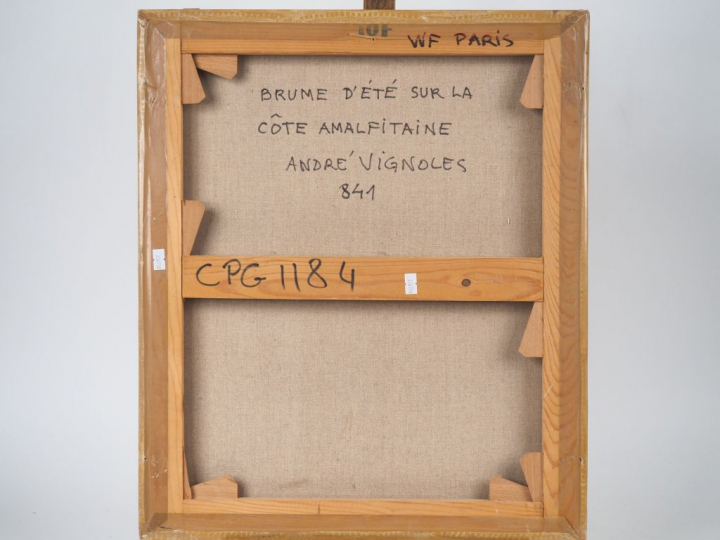 10F
WF PARIS
BRUME D'ÉTÉ SUR LA
CÔTE AMALFITAINE
ANDRÉ VIGNOLES
841
CPG 1184